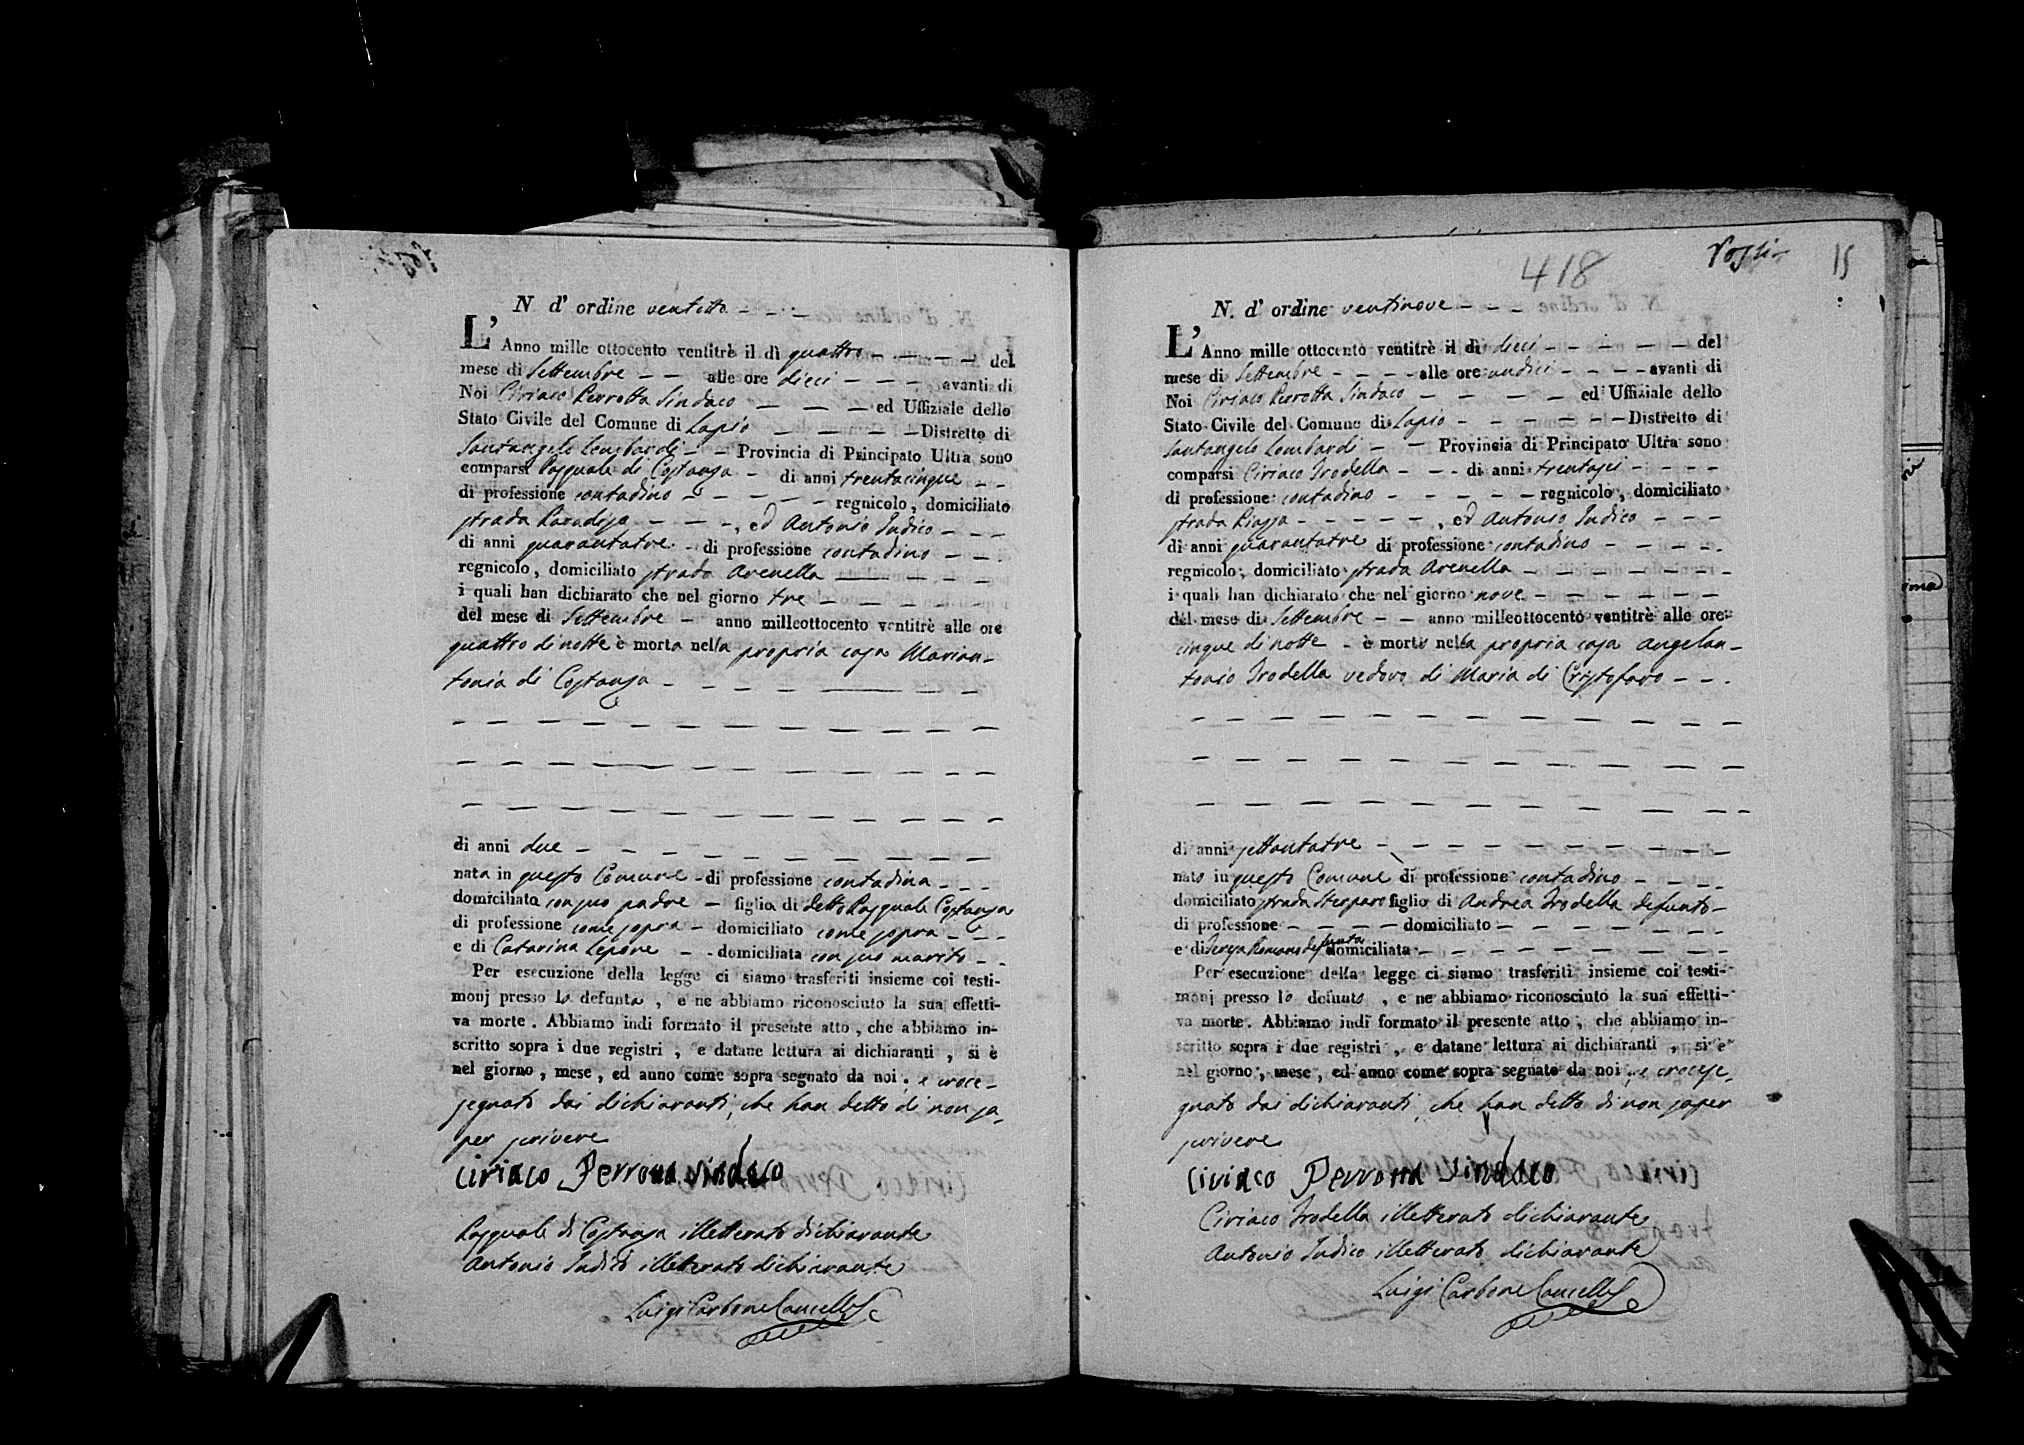 N. d' ordine ventotto
L' Anno mille ottocento ventitrè il dì quattro — — — — del
mese di Settembre — — alle ore dieci — — — avanti di
Noi Ciriaco Perrotta Sindaco — — — ed Uffiziale dello
Stato Civile del Comune di Lapio — — — — Distretto di
Santangelo Lombardi — — Provincia di Principato Ultra sono
comparsi Pasquale di Costanza — di anni trentacinque — —
di professione contadino — — — — — regnicolo, domiciliato
strada Paradiso — — — , ed Antonio Iudico — — —
di anni quarantatre — di professione contadino — — —
regnicolo, domiciliato strada Arenella — — — —
i quali han dichiarato che nel giorno tre — — — — — —
del mese di Settembre — anno milleottocento ventitrè alle ore
quattro di notte è morta nella propria casa Marian-
tonia di Costanza — — — — — — — —
di anni due — — — — — — — — — —
nata in questo Comune — di professione contadina — — —
domiciliata con suo padre — figlia di detto Pasquale Costanza
di professione come sopra — domiciliato come sopra — — —
e di Catarina Lepore — — domiciliata con suo marito — —
Per esecuzione della legge ci siamo trasferiti insieme coi testi-
monj presso la defunta , e ne abbiamo riconosciuto la sua effetti-
va morte . Abbiamo indi formato il presente atto , che abbiamo in-
scritto sopra i due registri , e datane lettura ai dichiaranti , si è
nel giorno , mese , ed anno come sopra segnato da noi , e croce-
segnato dai dichiaranti, che han detto di non sa-
per scrivere
Ciriaco Perrotta Sindaco
Pasquale di Costanza illetterato dichiarante
Antonio Iudico illetterato dichiarante
Luigi Carbone Cancell.
418 15
N. d' ordine ventinove — — —
L' Anno mille ottocento ventitrè il dì dieci — — — — — del
mese di Settembre — — — — alle ore undici — — — — avanti di
Noi Ciriaco Perrotta Sindaco — — — — ed Uffiziale dello
Stato Civile del Comune di Lapio — — — — — — Distretto di
Santangelo Lombardi — — Provincia di Principato Ultra sono
comparsi Ciriaco Trodella — — — di anni trentasei — — — —
di professione contadino — — — — — regnicolo, domiciliato
strada Piazza — — — — — , ed Antonio Iudico — — —
di anni quarantatre di professione contadino — — — — —
regnicolo, domiciliato strada Arenella — — — — — — —
i quali han dichiarato che nel giorno nove — — — — — —
del mese di Settembre — — anno milleottocento ventitrè alle ore
cinque di notte — è morto nella propria casa Angelan-
tonio Trodella vedovo di Maria di Cristofaro — — —
di anni settantatre — — — — — — — — —
nato in questo Comune di professione contadino — — — —
domiciliato strada figlio di Andrea Trodella defunto —
di professione — — — — domiciliato — — — — — — —
e di Teresa Romano defunta domiciliata — — — — — — — —
Per esecuzione della legge ci siamo trasferiti insieme coi testi-
monj presso lo defunto , e ne abbiamo riconosciuto la sua effetti-
va morte . Abbiamo indi formato il presente atto , che abbiamo in-
scritto sopra i due registri , e datane lettura ai dichiaranti , si è
nel giorno , mese , ed anno come sopra segnato da noi , e crocese-
gnato dai dichiaranti, che han detto di non saper
scrivere
Ciriaco Perrotta Sindaco
Ciriaco Trodella illetterato dichiarante
Antonio Iudico illetterato dichiarante
Luigi Carbone Cancell.